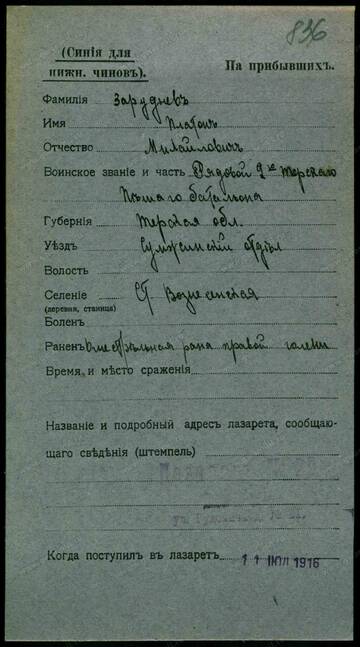 836
(Синія для
нижн. чиновъ).
На прибывшихъ.
Фамилія Заруднев
Имя Платонъ
Отчество Михайловичъ
Воинское званіе и часть Рядовой 2го Терскаго
Пѣшаго батальона
Губернія Терская обл.
Уѣздъ Сунженскій отдѣл
Волость
Селеніе Ст Вознесенская
(деревня, станица)
Боленъ
Раненъ рана правой голени
Время и мѣсто сраженія
Названіе и подробный адресъ лазарета, сообщаю-
щаго свѣдѣнія (штемпель)
Когда поступилъ въ лазаретъ 11 ІЮЛ 1916